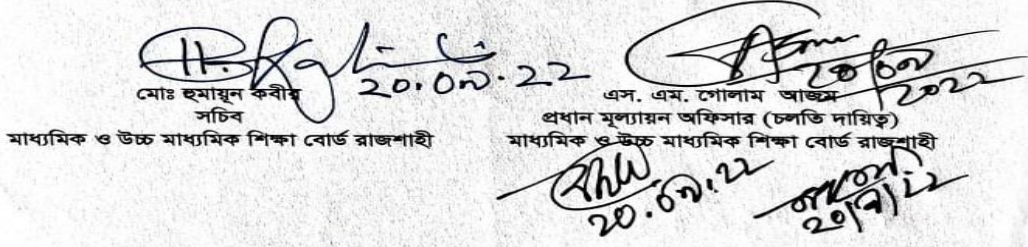 ২০.০৯.২২
২০/০৯/২০২২
মোঃ হুমায়ূন কবীর
সচিব
মাধ্যমিক ও উচ্চ মাধ্যমিক শিক্ষা বোর্ড রাজশাহী
এস. এম. গোলাম আজম
প্রধান মূল্যায়ন অফিসার (চলতি দায়িত্ব)
মাধ্যমিক ও উচ্চ মাধ্যমিক শিক্ষা বোর্ড রাজশাহী
২০.০৯.২২
২০/৯/২২